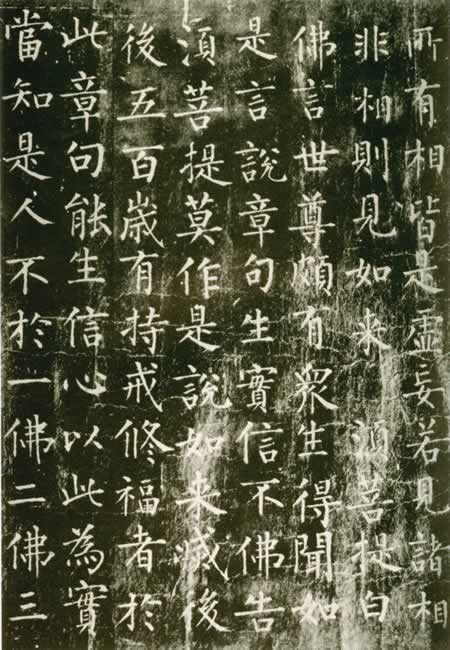 所有相皆是虛妄若見諸相
非相則見如来　須菩提白
佛言世尊頗有衆生得聞如
是言說章句生實信不佛告
須菩提莫作是說如来滅後
後五百歲有持戒修福者於
此章句能生信心以此為實
當知是人不於一佛二佛三